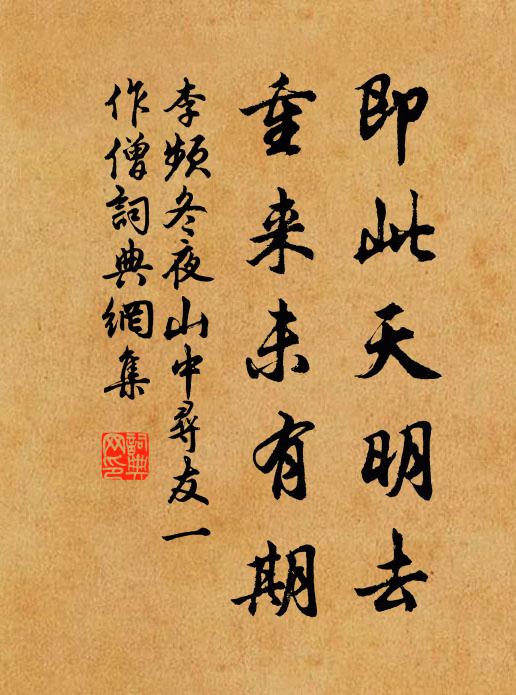 即此天明去
重来未有期
李频冬夜山中尋友一
作僧詞典網集
詞典
网印